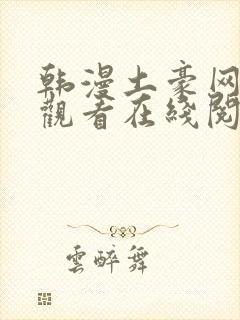 韩漫土豪网
觀看在綫閱
雲醉舞